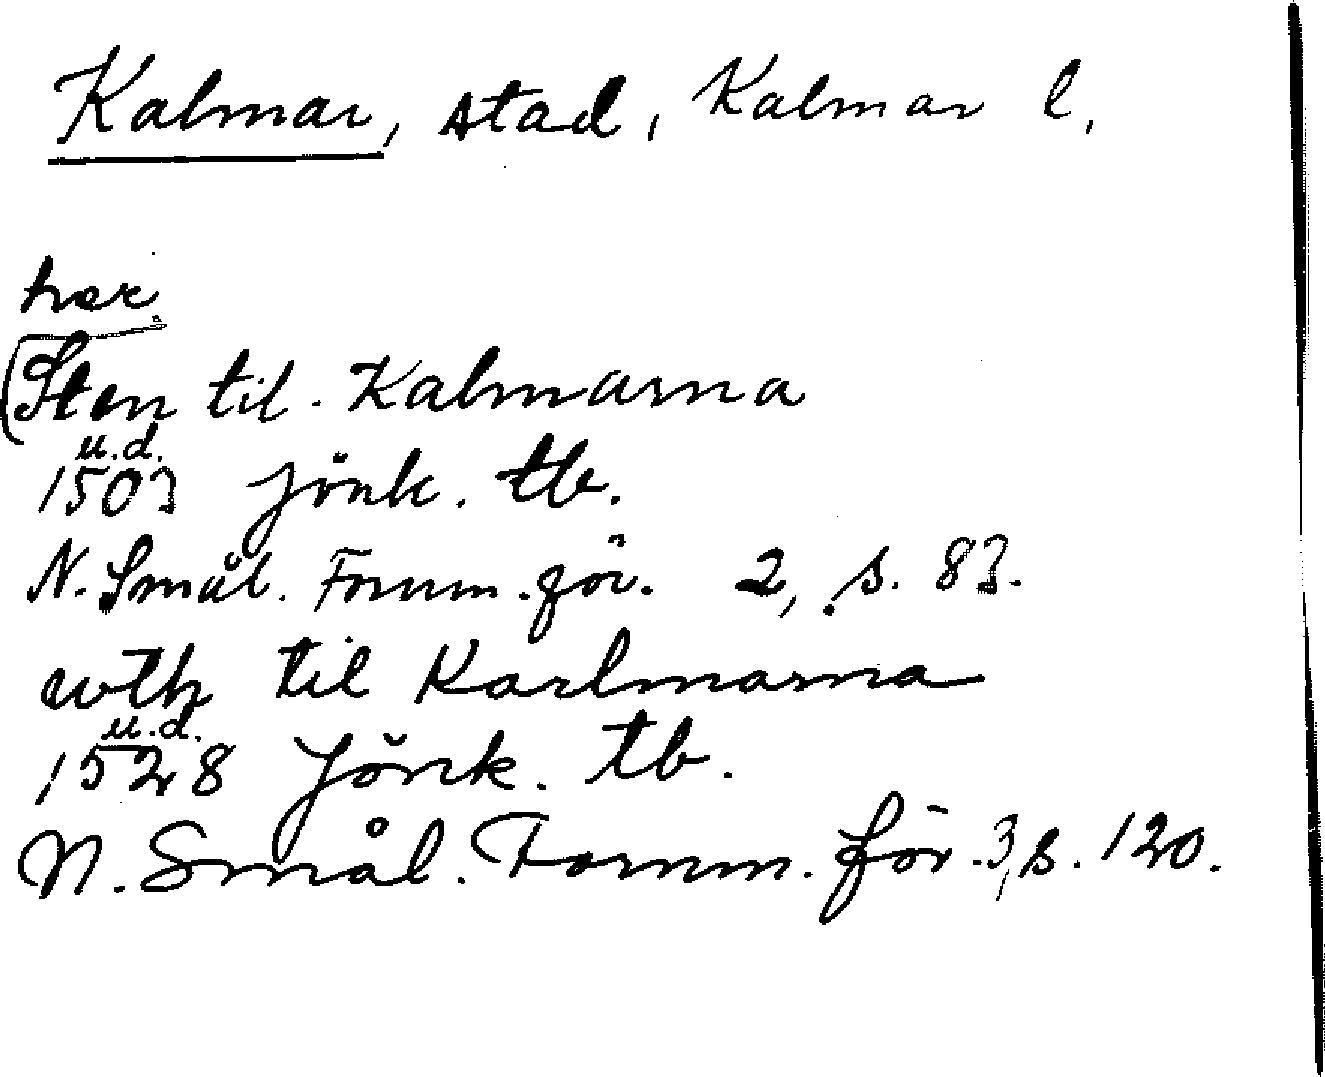 Kalmar, stad, Kalmar l.
her
(Sten til Kalmarna
u.d.
1503 Jönk. tb.
N. Smål. Fornm. för. 2, s. 83.
wth til Karlmarna
u.d.
1528 Jönk. tb.
N. Smål. Fornm. för. 3, s. 120.